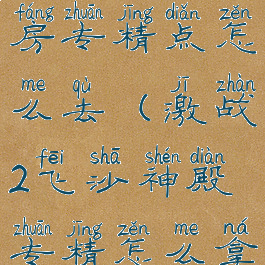 fáng zhuān jīng diǎn zěn
房专精点怎
me qù jī zhàn
么去(激战
fēi shā shén diàn
2飞沙神殿
zhuān jīng zěn me ná
专精怎么拿